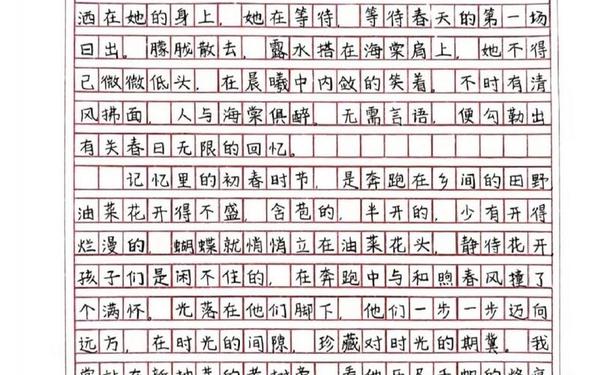 洒在她的身上，她在等待，等待春天的第一场
日出。朦胧散去，露水搭在海棠肩上，她不得
己微微低头，在晨曦中内敛的笑着。不时有清
风拂面，人与海棠俱醉。无需言语，便勾勒出
有关春日无限的回忆。
记忆里的初春时节，是奔跑在乡间的田野
油菜花开得不盛，含苞的，半开的，少有开得
烂漫的，蝴蝶就悄悄立在油菜花头，静待花开
孩子们是闲不住的，在奔跑中与和煦春风撞了
个满怀。光落在他们脚下，他们一步一步迈向
远方，在时光的间隙，珍藏对时光的期冀。我